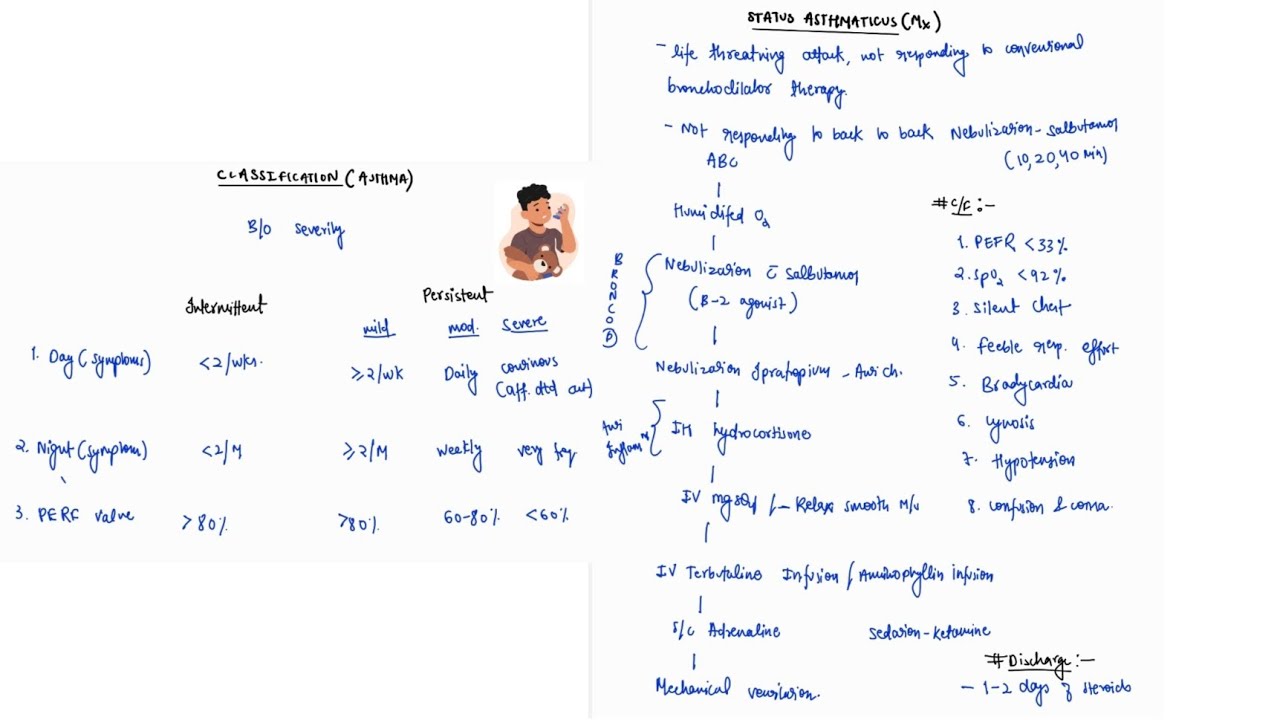 CLASSIFICATION (ASTHMA)
B/O severity
Intermittent
Persistent
mild mod. Severe
1. Day (symptoms) <2/wks. ≥2/wk Daily
(aff. dtd act)
2. Night (symptom) <2/M ≥2/M weekly very freq
3. PERF value >80% >80% 60-80% <60%
STATUS ASTHMATICUS (Mx)
- life threatning attack, not responding to conventional
bronchodilator therapy.
- Not responding to back to back Nebulization - salbutamol
(10,20,40 Min)
ABC
Humidifed O2
BRONCOD
Nebulization c̄ salbutamol
(B-2 agonist)
Nebulization Ipratopium - Anti ch.
Anti Inflam
hydrocortisone
IV mgso4 /- Relax smooth M/s
IV Terbutaline Infusion / Aminophyllin infusion
S/C Adrenaline
Sedation - ketamine
Mechanical ventilation.
# C/F :-
1. PEFR <33%
2. SpO2 <92%
3. Silent Chest
4. feeble resp. effort
5. Bradycardia
6. cynosis
7. Hypotension
8. confusion & coma.
# Discharge :-
- 1-2 days of steroids